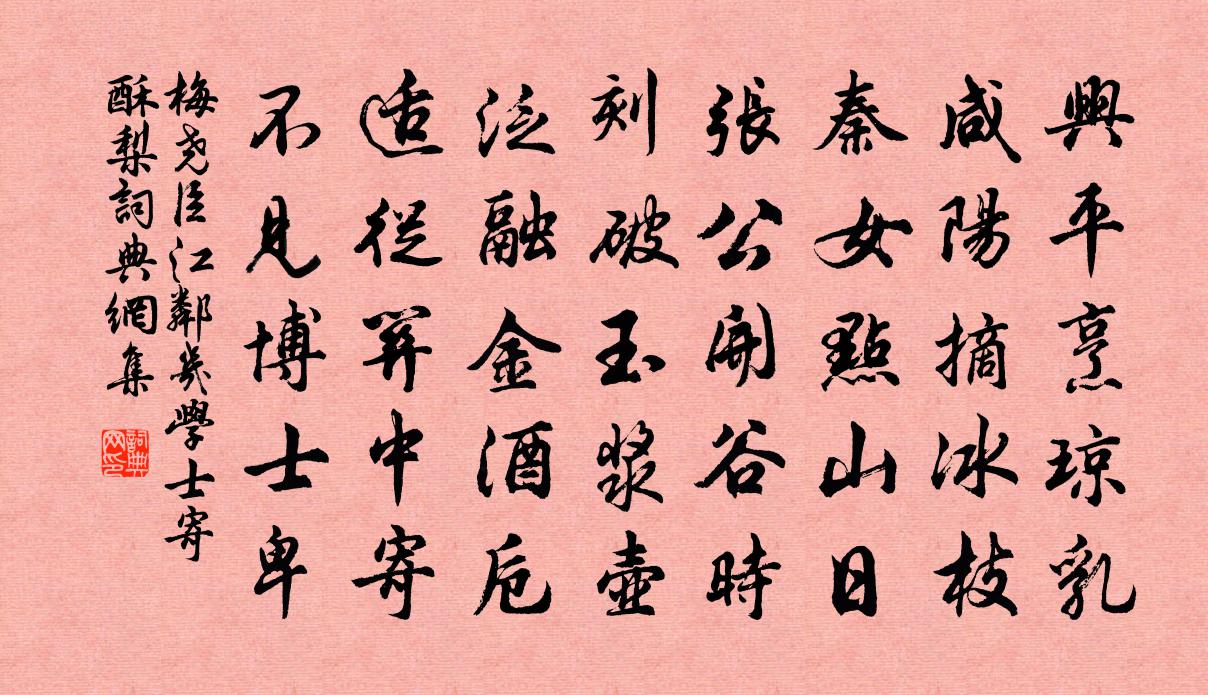 興平烹琼乳
咸陽摘冰枝
秦女點山日
張公開谷時
刻破玉漿壺
泛融金酒卮
适從笄中寄
不見博士卑
梅尧臣江鄰幾學士寄
酥梨詞典網集
詞典网印